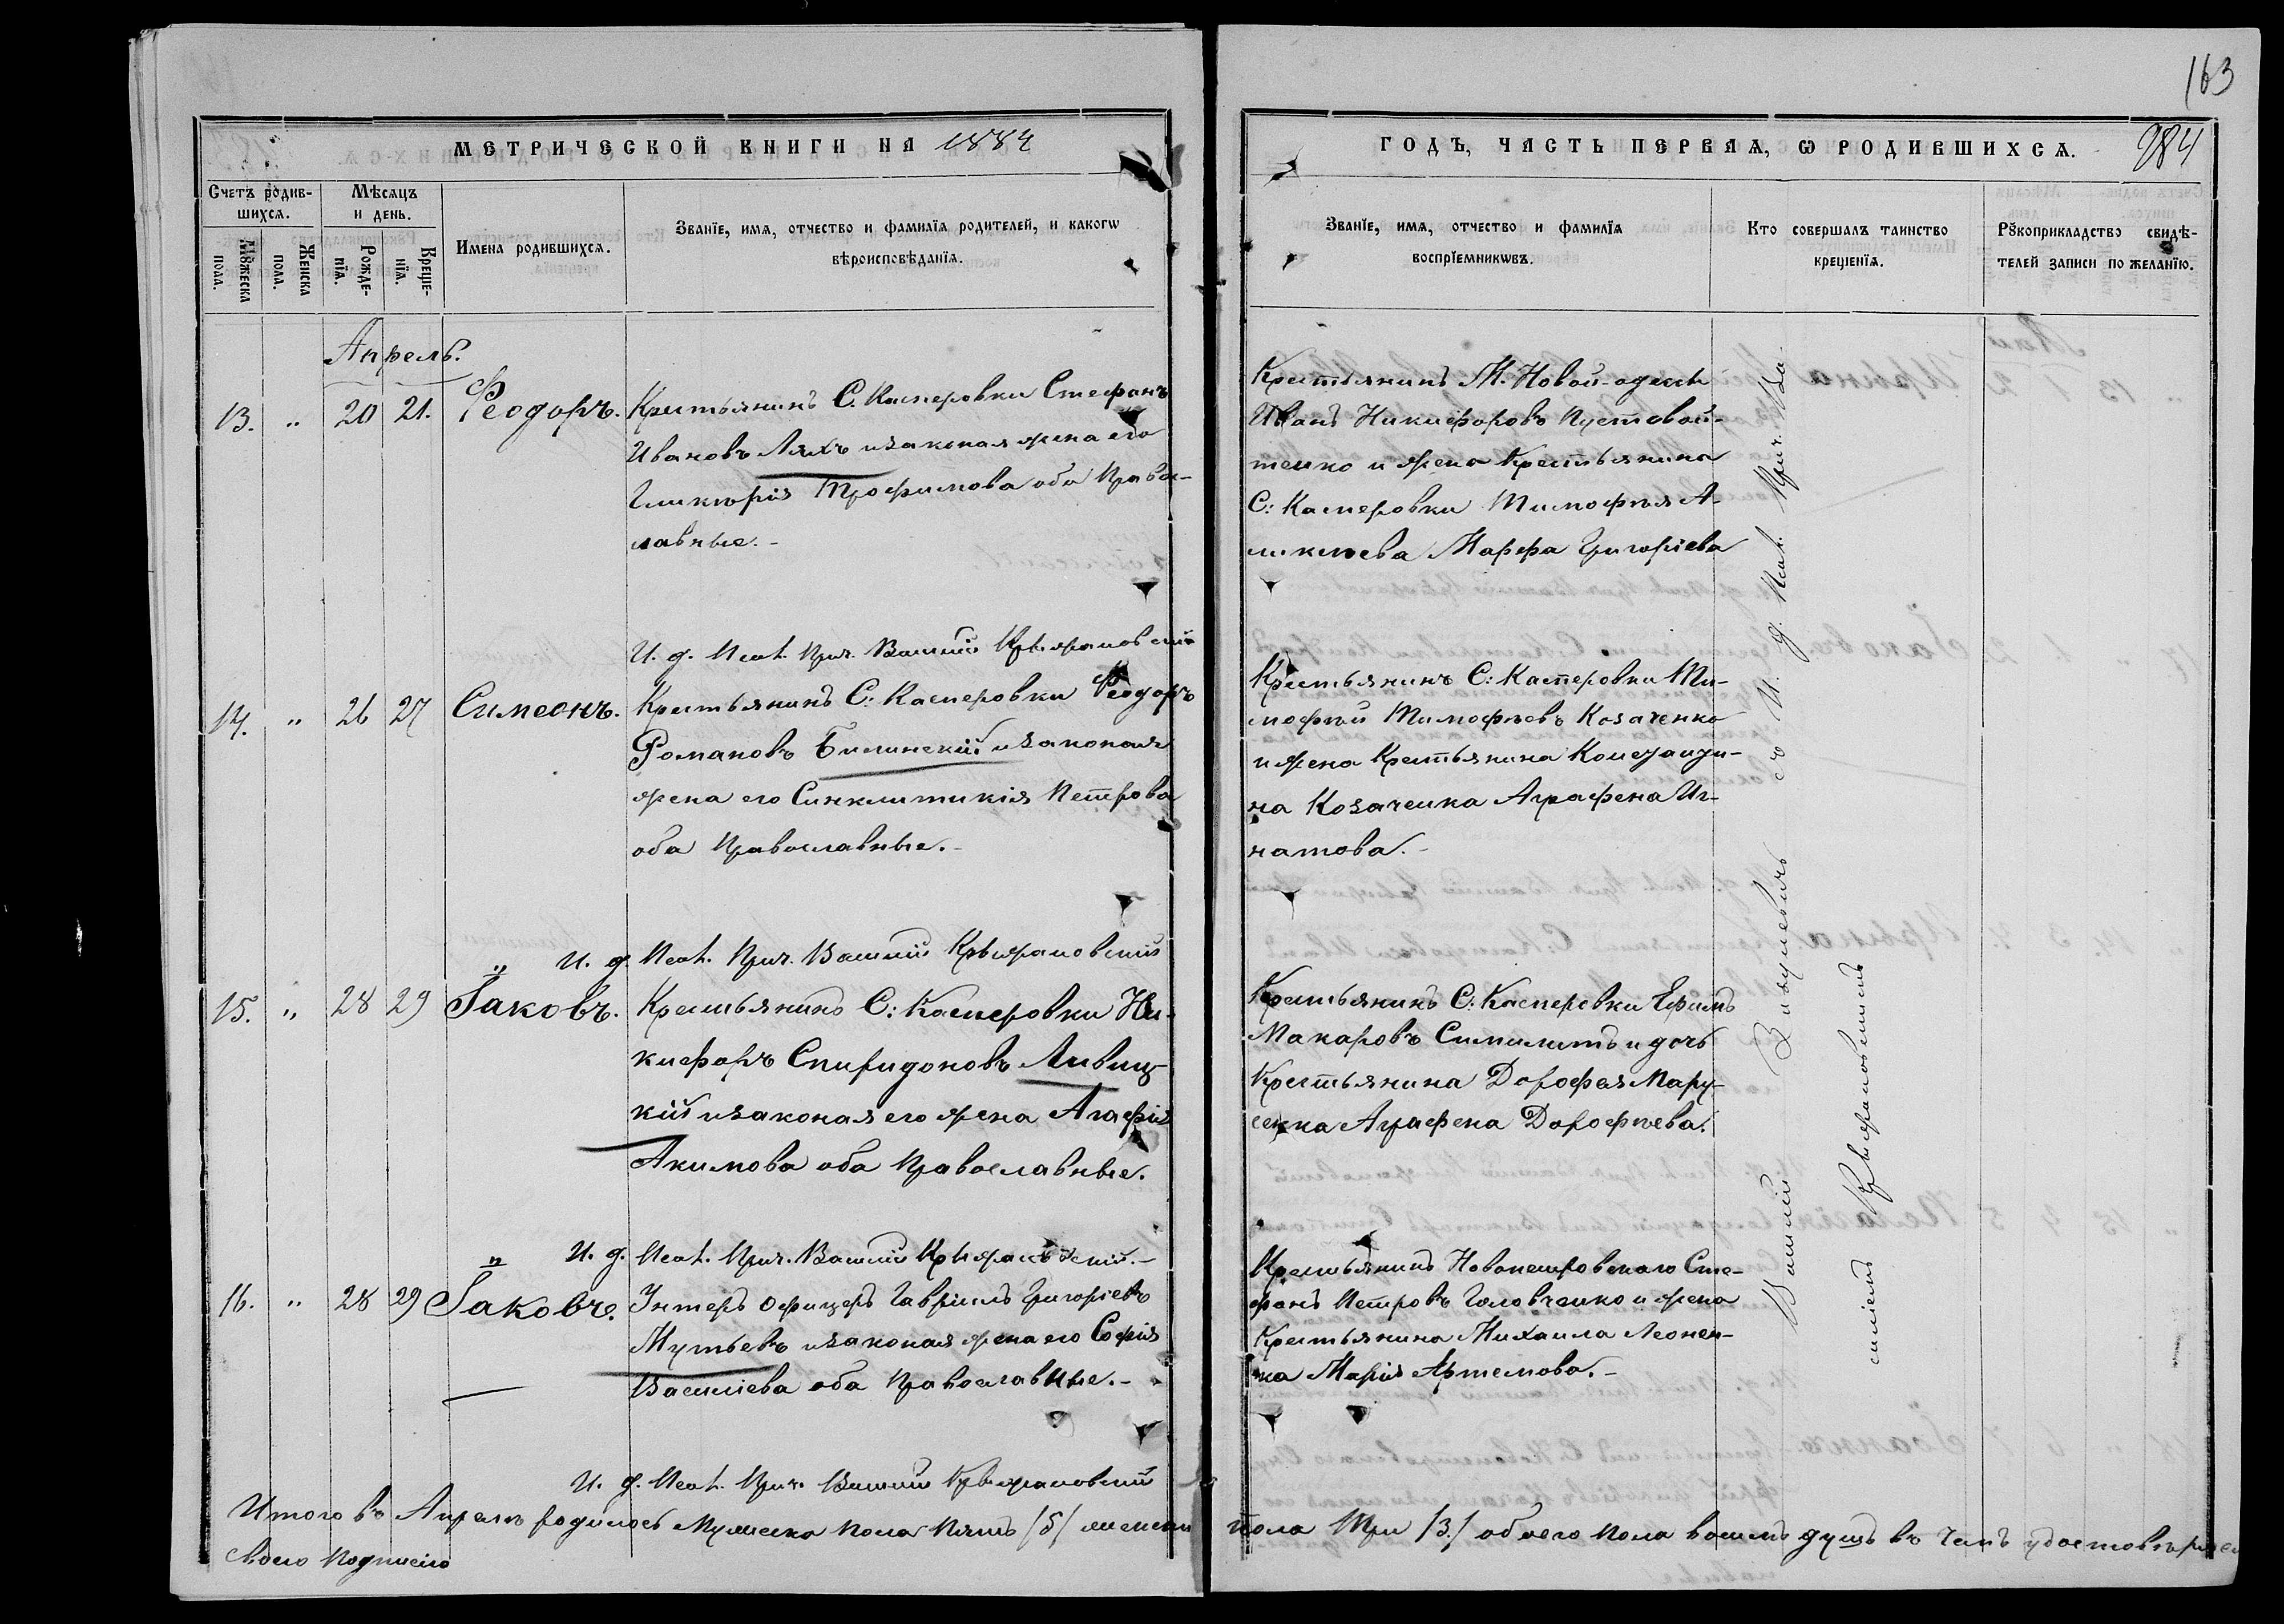 163
МЕТРИЧЕСКОЙ КНИГИ НА 1884
ГОДЪ, ЧАСТЬ ПЕРВАЯ, Ѡ РОДИВШИХСѦ.
984
Счетъ родив-
шихсѧ.
Мѣсѧцъ
и день.
Мꙋжеска
пола.
Женска
пола.
Рожде-
нїѧ.
Креще-
нїѧ.
Имена родившихсѧ.
Званїе, имѧ, отчество и фамилїѧ родителей, и какогѡ
вѣроисповѣданїѧ.
Званїе, имѧ, отчество и фамилїѧ
воспрїемникѡвъ.
Кто совершалъ таинство
крещенїѧ.
Рꙋкоприкладство свидѣ-
телей записи по желанїю.
Апрель.
13. " 20 21. Ѳеодоръ.
Крестьянинъ С. Касперовки Стефанъ
Ивановъ Ляхъ и законая жена его
Гликерія Трофимова оба Право-
лавные.-
Крестьянинъ М. Новой-одессы
Иванъ Никифоровъ Пустовой-
тенко и жена Крестьянина
С: Касперовки Тимофея А-
лексеева Марфа Григоріева
И. д. Псал. Прич. Василій Крыжановскій
14. " 26 27 Симеонъ.
Крестьянинъ С: Касперовки Ѳеодоръ
Романовъ Билинскій и законая
жена его Синклитикія Петрова
оба Православные.-
Крестьянинъ С: Касперовки Ти-
мофей Тимофеевъ Козаченко
и жена Крестьянина
на Козаченка Аграфена Иг-
натова.-
И. д. Псал. Прич. Василій Крыжановскій
15. " 28 29 Іаковъ.
Крестьянинъ С: Касперовки Ни-
кифоръ Спиридоновъ Ливиц-
кій и законая его жена Агафія
Акимова оба Православные.
Крестьянинъ С: Касперовки Ефимъ
Макаровъ и дочь
Крестьянина Дорофея Мару-
сенка Аграфена Дорофеева.
И. д. Псал. Прич. Василій Крыжановскій.-
16. " 28 29 Іаковъ.
Унтеръ офицеръ Гавріилъ Григоріевъ
Мутьевъ и законая жена его Софія
Василіева оба Православные.-
Крестьянинъ Новопетровскаго Сте-
фанъ Петровъ Головченко и жена
Крестьянина Михаила Леонен-
ка Марія Артемова.-
И. д. Псал. Прич. Василій Крыжановскій
съ И. д. Псал. Прич. Ва-
силіемъ Крыжановскимъ
Итого въ Апреле родилось Мужеска пола Пять /5/ женска пола Три /3./ обоего пола восемь душъ въ чемъ
своею подписію